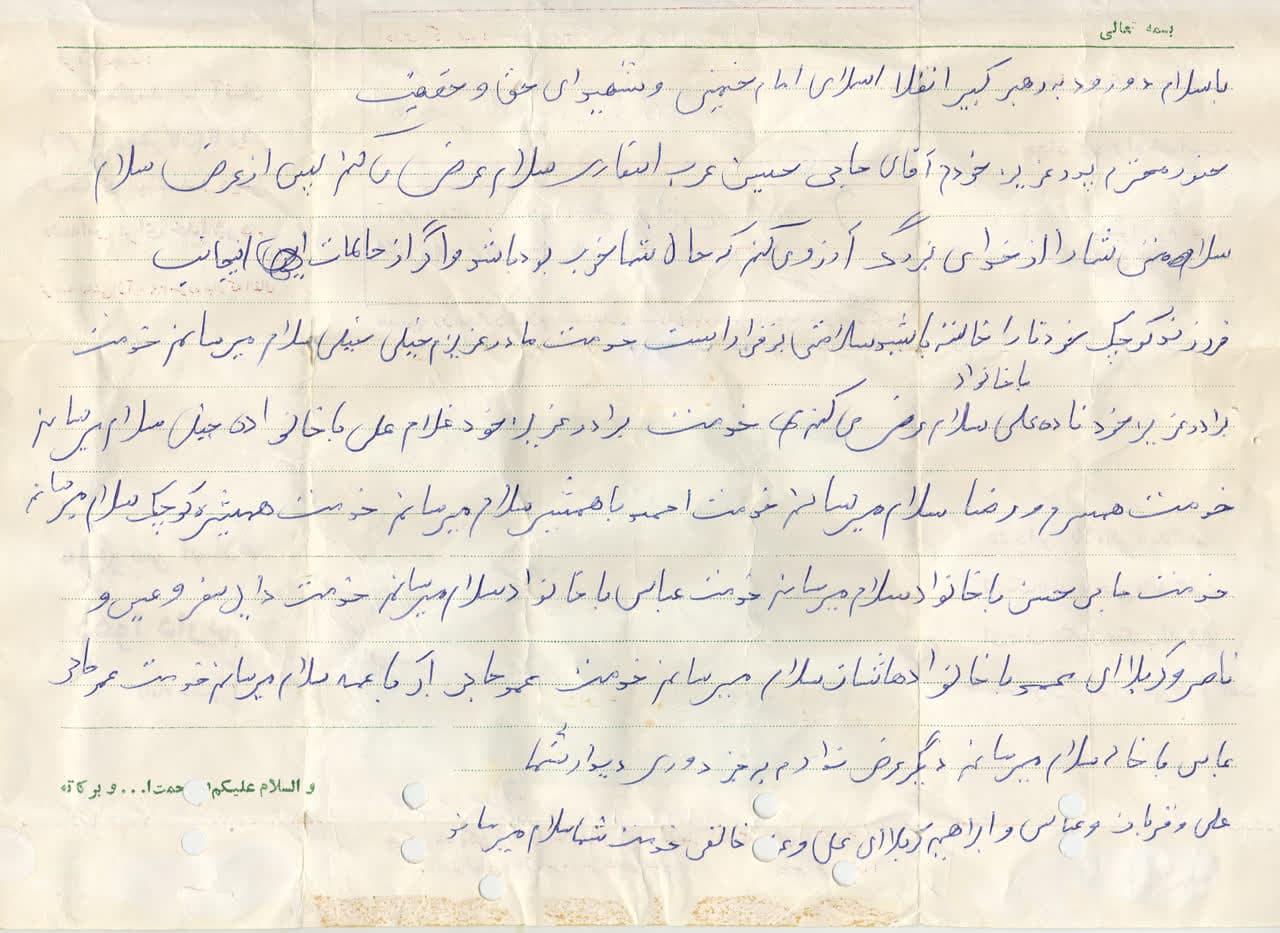 بسمه تعالی
با سلام و درود به رهبر کبیر انقلا اسلامی امام خمینی و شهیدای حق و حقیقت
حضور محترم پدر عزیز خودم آقای حاجی حسین عرب سلام عرض می کنم پس از عرض سلام
سلامتی شما را از خدای بزرگ آرزوی کنم که حال شما خوب بوده باشد و اگر از حالمات اینجانب
فرزند کوچک خودتا را خاسته باشید سلامتی برقرار است خومت مادر عزیزم خیلی خیلی سلام میرسانم خومت
با خانواد
برادر عزیز خود علی سلام عرض می کنم خومت برادر عزیز خود غلام علی با خانواده خیلی سلام میرسانم
خومت همسرم و رضا سلام میرسانم خومت احمد با همشیر سلام میرسانم خومت همشیره کوچک سلام میرسانم
خومت حاجی حسن با خانواد سلام میرسانم خومت عباس با خانواد سلام میرسانم خومت و
ناصر و کربلاای محمد با خانوادهاشان سلام میرسانم خومت عمو حاجی اکبر با عمه سلام میرسانم خومت عمو حاجی
عباس با خاله سلام میرسانم دیگر عرض ندارم به جز دوری دیدار شما
و السلام علیکم حمت ا... و برکاته
علی و قربان و عباس و ابراهیم کربلاای علی و خالقی خومت شما سلام میرسانم